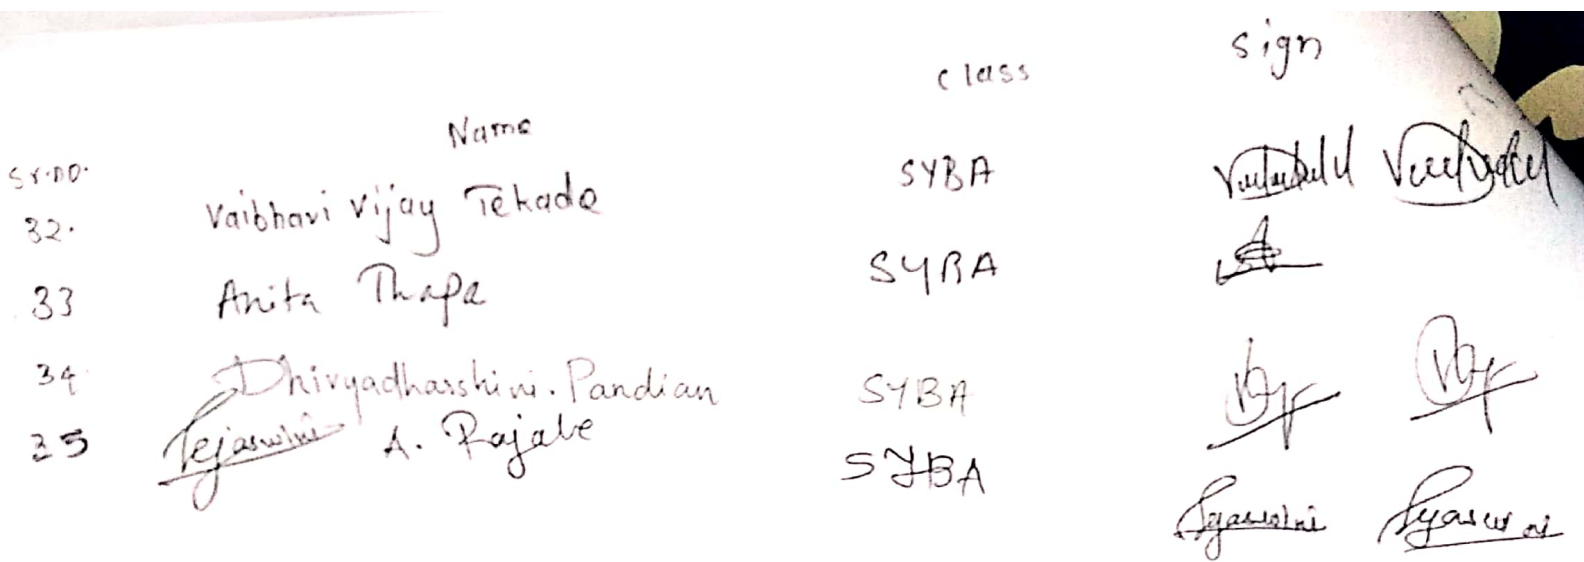 Sr.no. Name class sign
32. Vaibhavi Vijay Tekade SYBA
33 Anita Thapa SYBA
34 Dhivyadharshini. Pandian SYBA
35 Tejaswini A. Rajabe SYBA Tejaswini Tejaswini